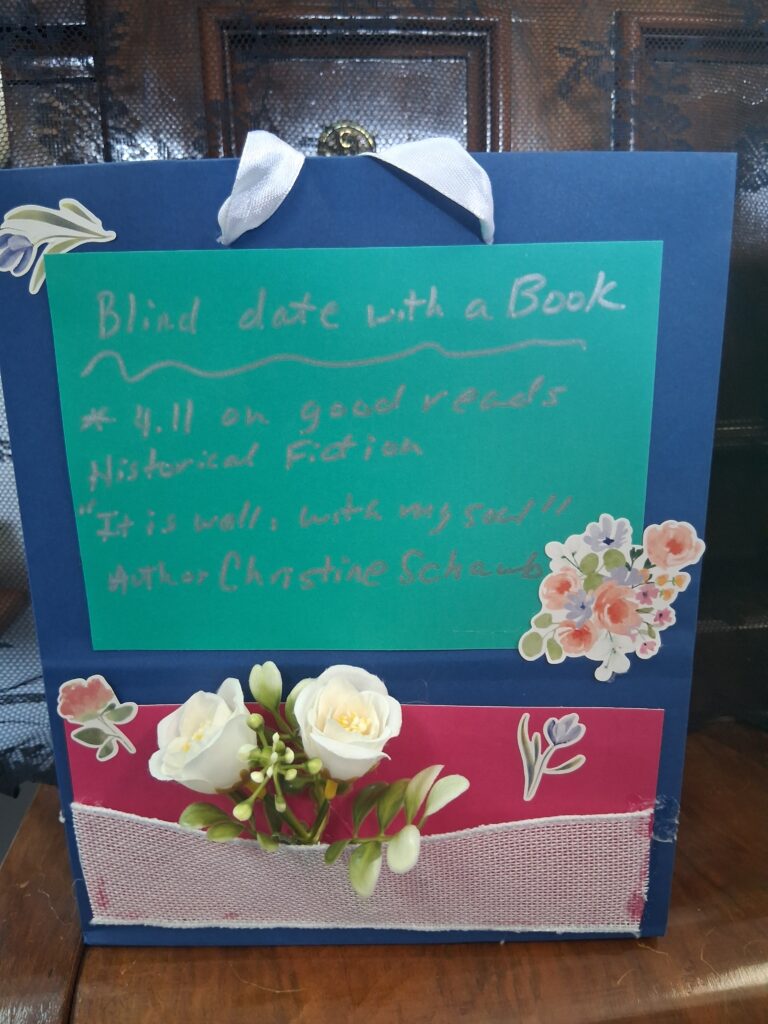 Blind date with a Book
* 4.11 on good reads
Historical Fiction
"It is well, with my soul"
Author Christine Schaub